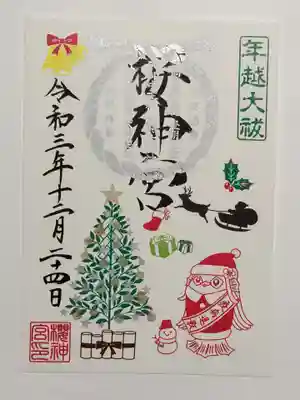 年越大祓
桜神宮
令和三年十二月二十四日
櫻神
宮印